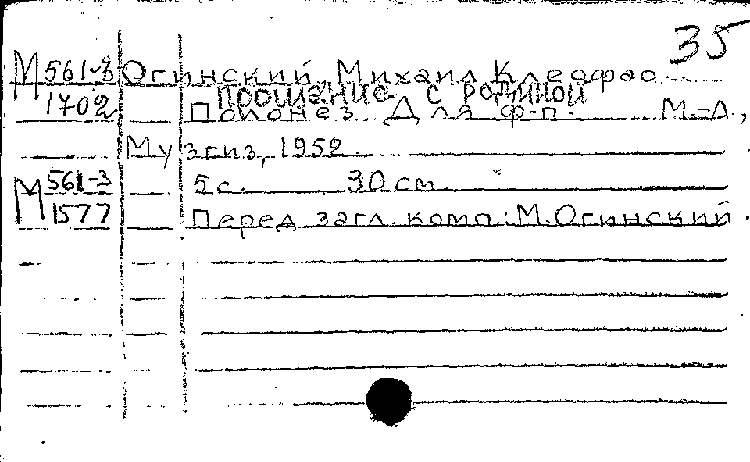 35
М 561-3 Огинский, Михаил Клеофас
1702 Прощание с родиной
Полонез. Для ф-п. М.-Л.,
Музгиз, 1952.
М 561-3 5 с. 30 см.
1577 Перед загл. комп.: М. Огинский.